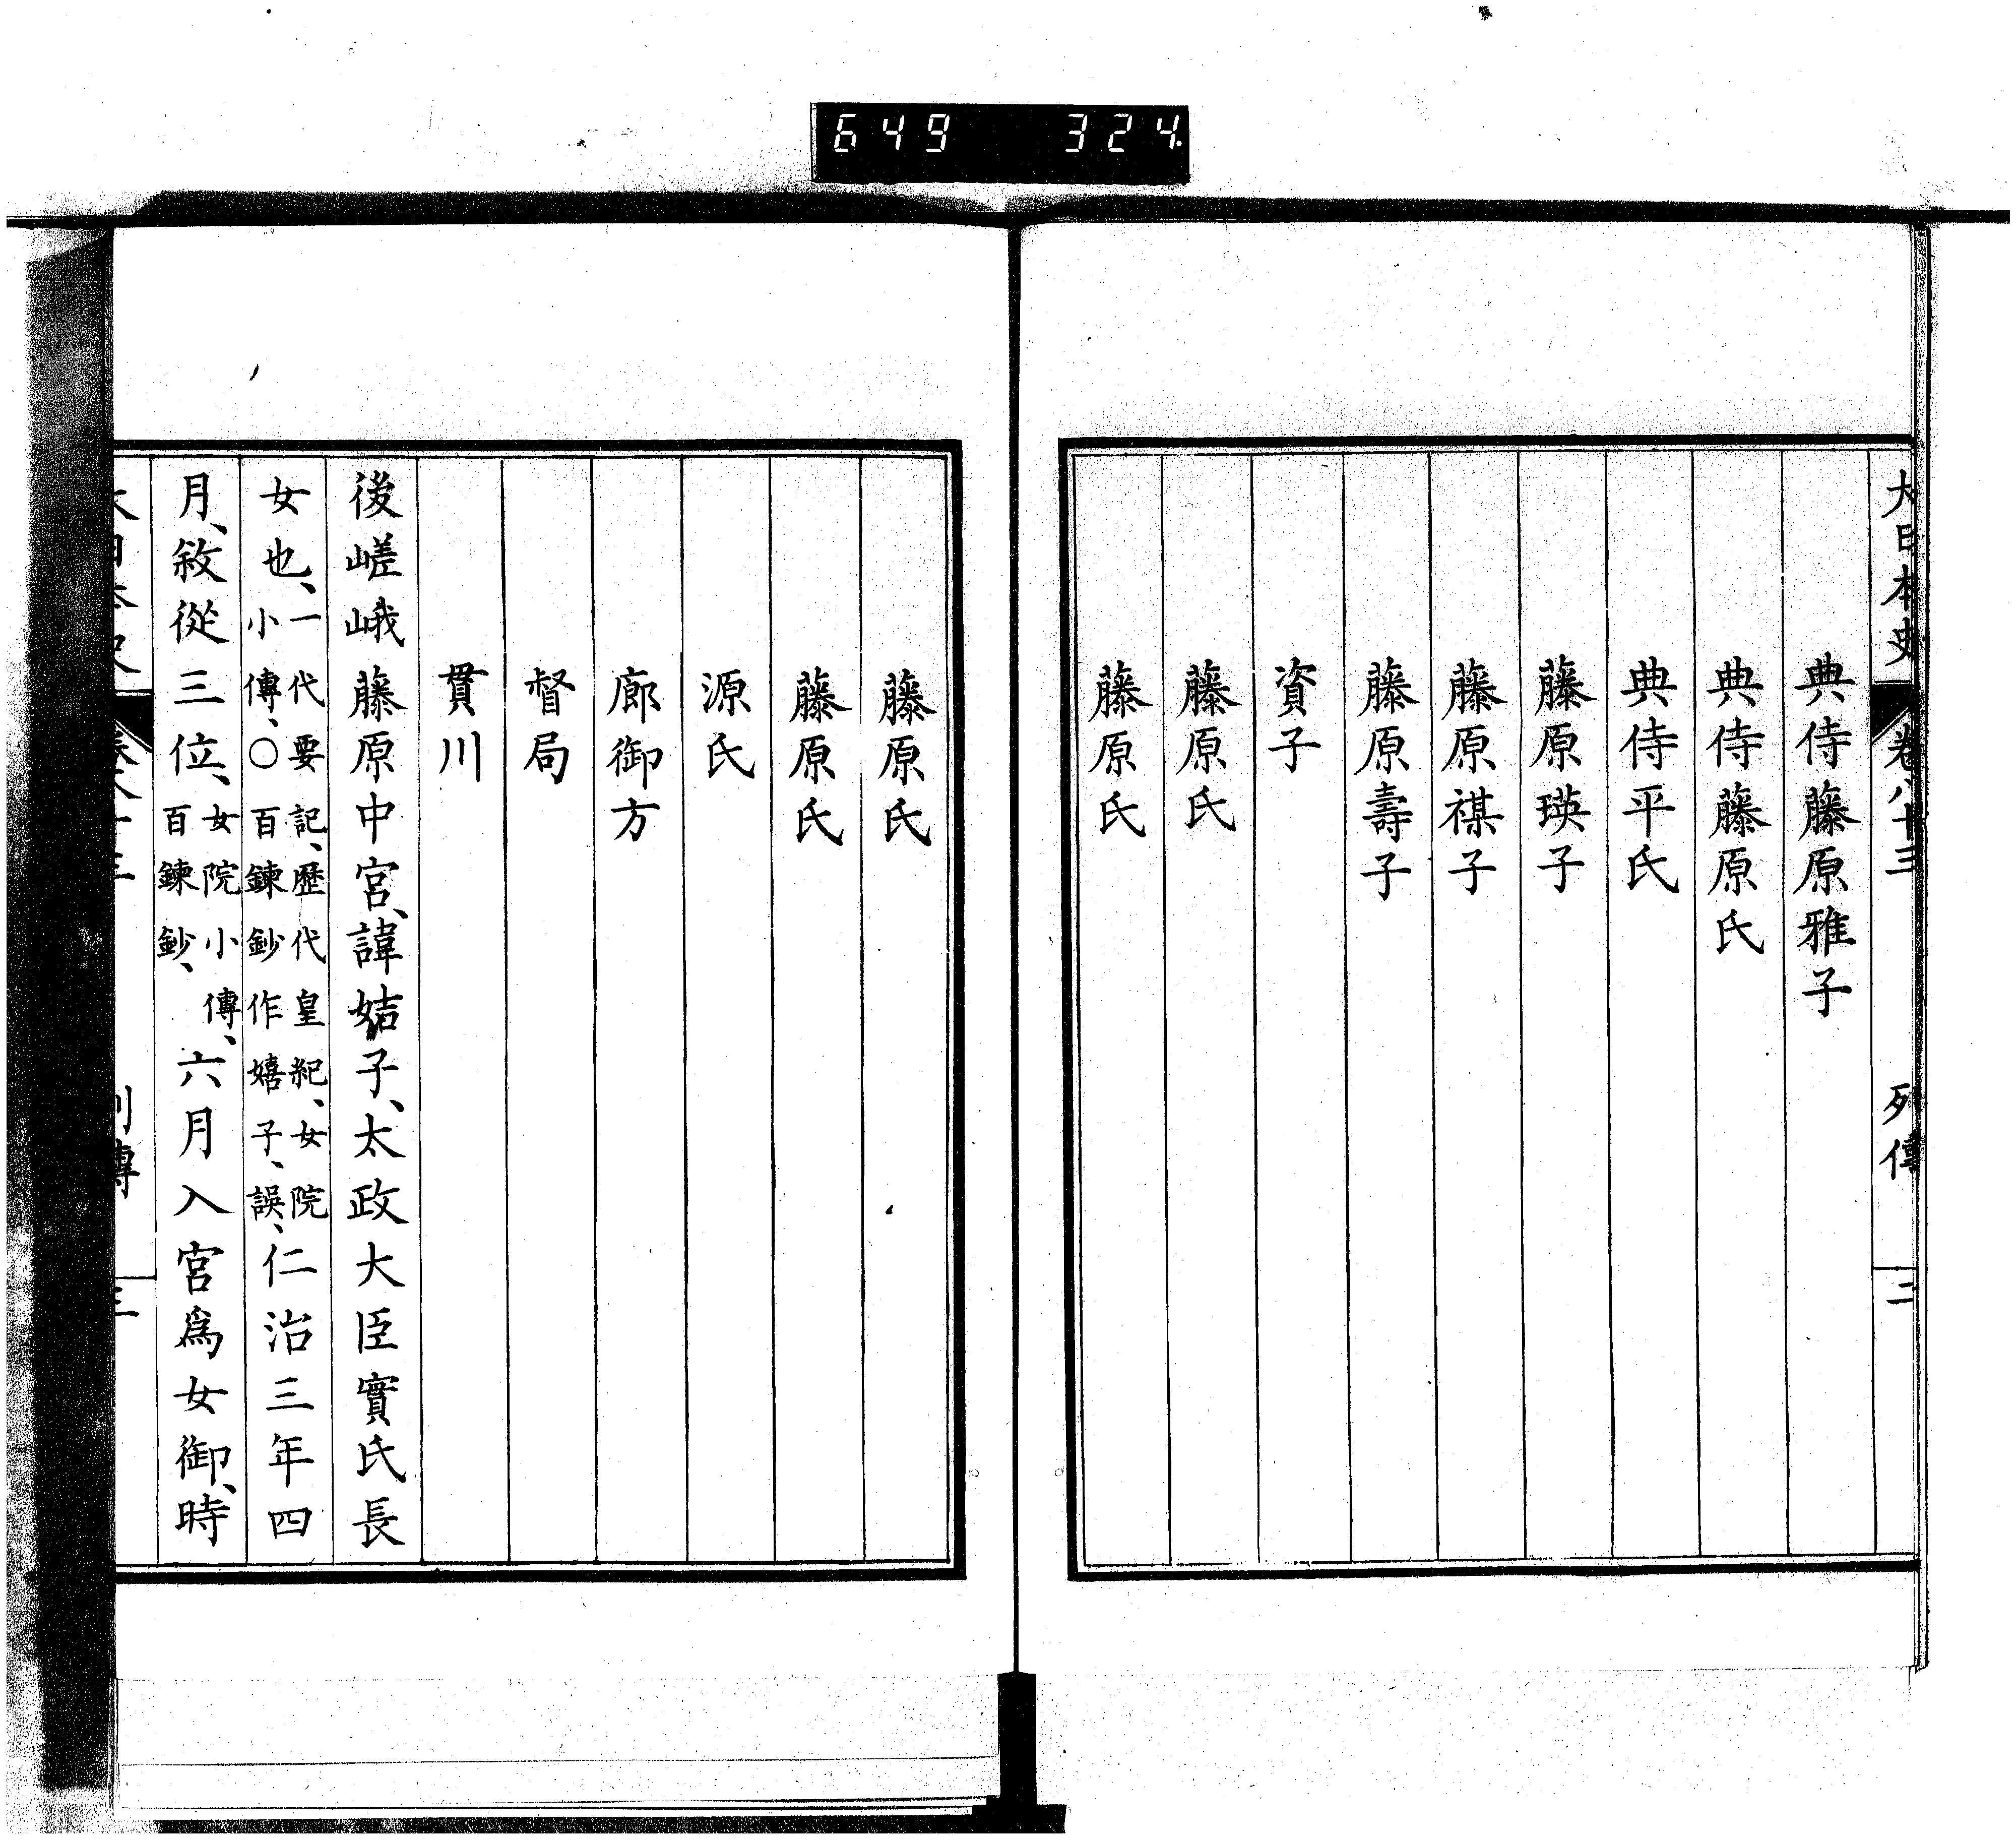 649 324
大日本史 卷八十三 列傳 二
典侍藤原雅子
典侍藤原氏
典侍平氏
藤原瑛子
藤原禖子
藤原壽子
資子
藤原氏
藤原氏
藤原氏
藤原氏
源氏
廊御方
督局
貫川
後嵯峨藤原中宮、諱姞子、太政大臣實氏長
女也、一代要記、歷代皇紀、女院小傳、○百鍊鈔作嬉子、誤、仁治三年四
月、敘從三位、女院小傳、百鍊鈔、六月入宮爲女御、時
大日本史 卷八十三 列傳 三